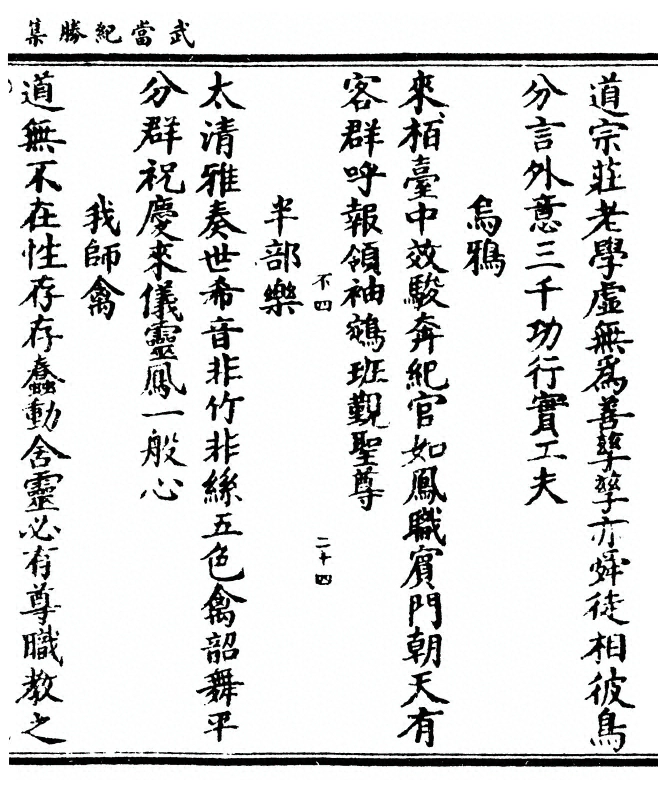 武當紀勝集
道宗莊老學虛無為善孳孳亦舜徒相彼鳥
分言外意三千功行實工夫
烏鴉
來栢臺中效駿奔紀官如鳳職賓門朝天有
客群呼報領袖鵷班覲聖尊
不四
二十四
半部樂
太清雅奏世希音非竹非絲五色禽韶舞平
分群祝慶來儀靈鳳一般心
我師禽
道無不在性存存蠢動含靈必有尊職教之